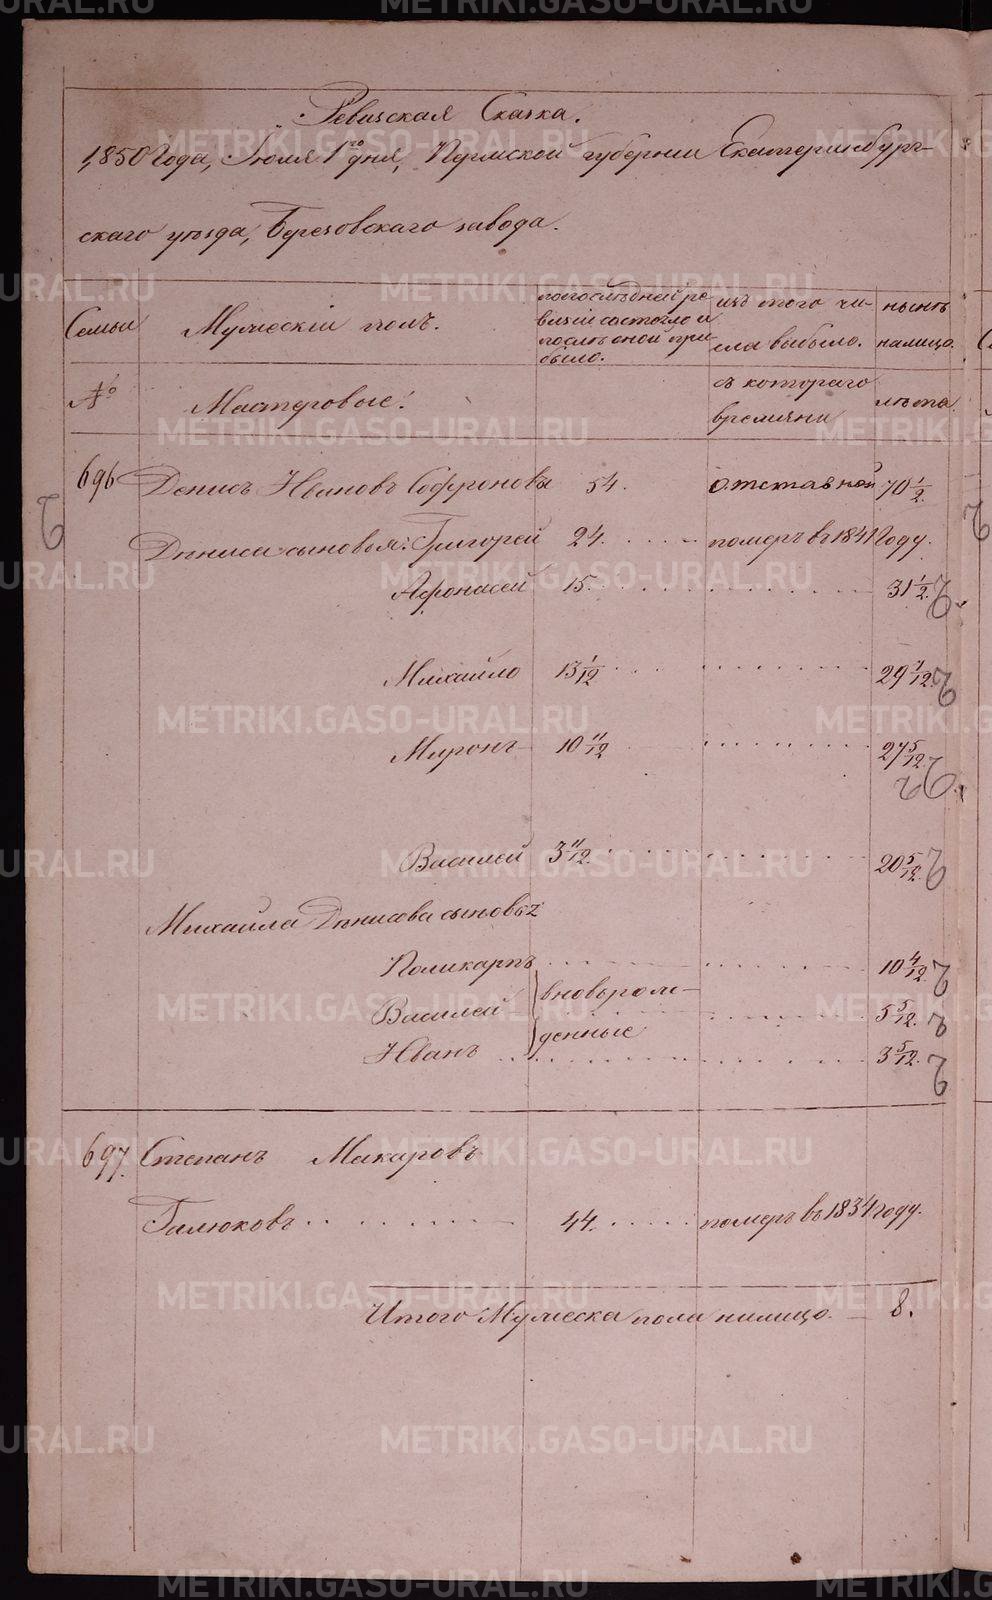 Ревизская Сказка.
1850 Года, Июля 1го дня, Пермской губернии Екатеринбург-
скаго уѣзда, Березовскаго завода.
Семьи
Мужескiй полъ.
попослѣдней ре-
визiи состояло и
послѣ оной при-
было.
изъ того чи-
сла выбыло.
нынѣ
налицо.
№
Мастеровые:
съ котораго
времяни
лѣта
696 Денисъ Ивановъ Софроновъ 54. отставной 70 1/2.
Дениса сыновья: Григорей 24. померъ въ 1841 Году.
Афонасей 15. 31 1/2.
Михайло 13 1/12 29 7/12.
Миронъ 10 11/12 27 5/12.
Василей 3 11/12. 20 5/12.
Михайла Денисова сыновья
Поликарпъ 10 4/12.
вновьрож-
Василей 5 5/12.
денные
Иванъ 3 5/12.
697. Степанъ Макаровъ
Галюковъ 44. померъ въ 1834 году.
Итого Мужеска пола налицо. 8.
METRIKI.GASO-URAL.RU